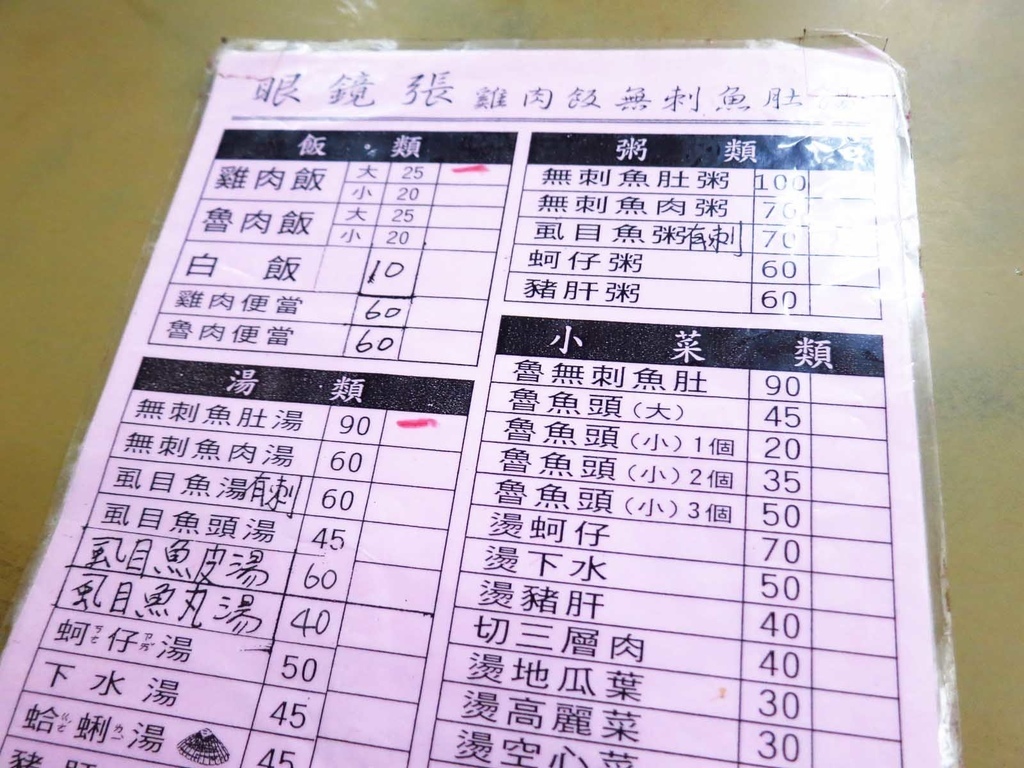 眼鏡張 雞肉飯無刺魚肚
飯 類
雞肉飯 大 25
小 20
魯肉飯 大 25
小 20
白 飯 10
雞肉便當 60
魯肉便當 60
湯 類
無刺魚肚湯 90
無刺魚肉湯 60
虱目魚湯有刺 60
虱目魚頭湯 45
虱目魚皮湯 60
虱目魚丸湯 40
蚵ㄜˊ仔ㄗㄞˇ湯 50
下水湯 45
蛤ㄍㄜˊ蜊ㄌㄧˊ湯 45
豬肝
粥 類
無刺魚肚粥 100
無刺魚肉粥 70
虱目魚粥有刺 70
蚵仔粥 60
豬肝粥 60
小菜類
魯無刺魚肚 90
魯魚頭(大) 45
魯魚頭(小)1個 20
魯魚頭(小)2個 35
魯魚頭(小)3個 50
燙蚵仔 70
燙下水 50
燙豬肝 40
切三層肉 40
燙地瓜葉 30
燙高麗菜 30
燙空心菜